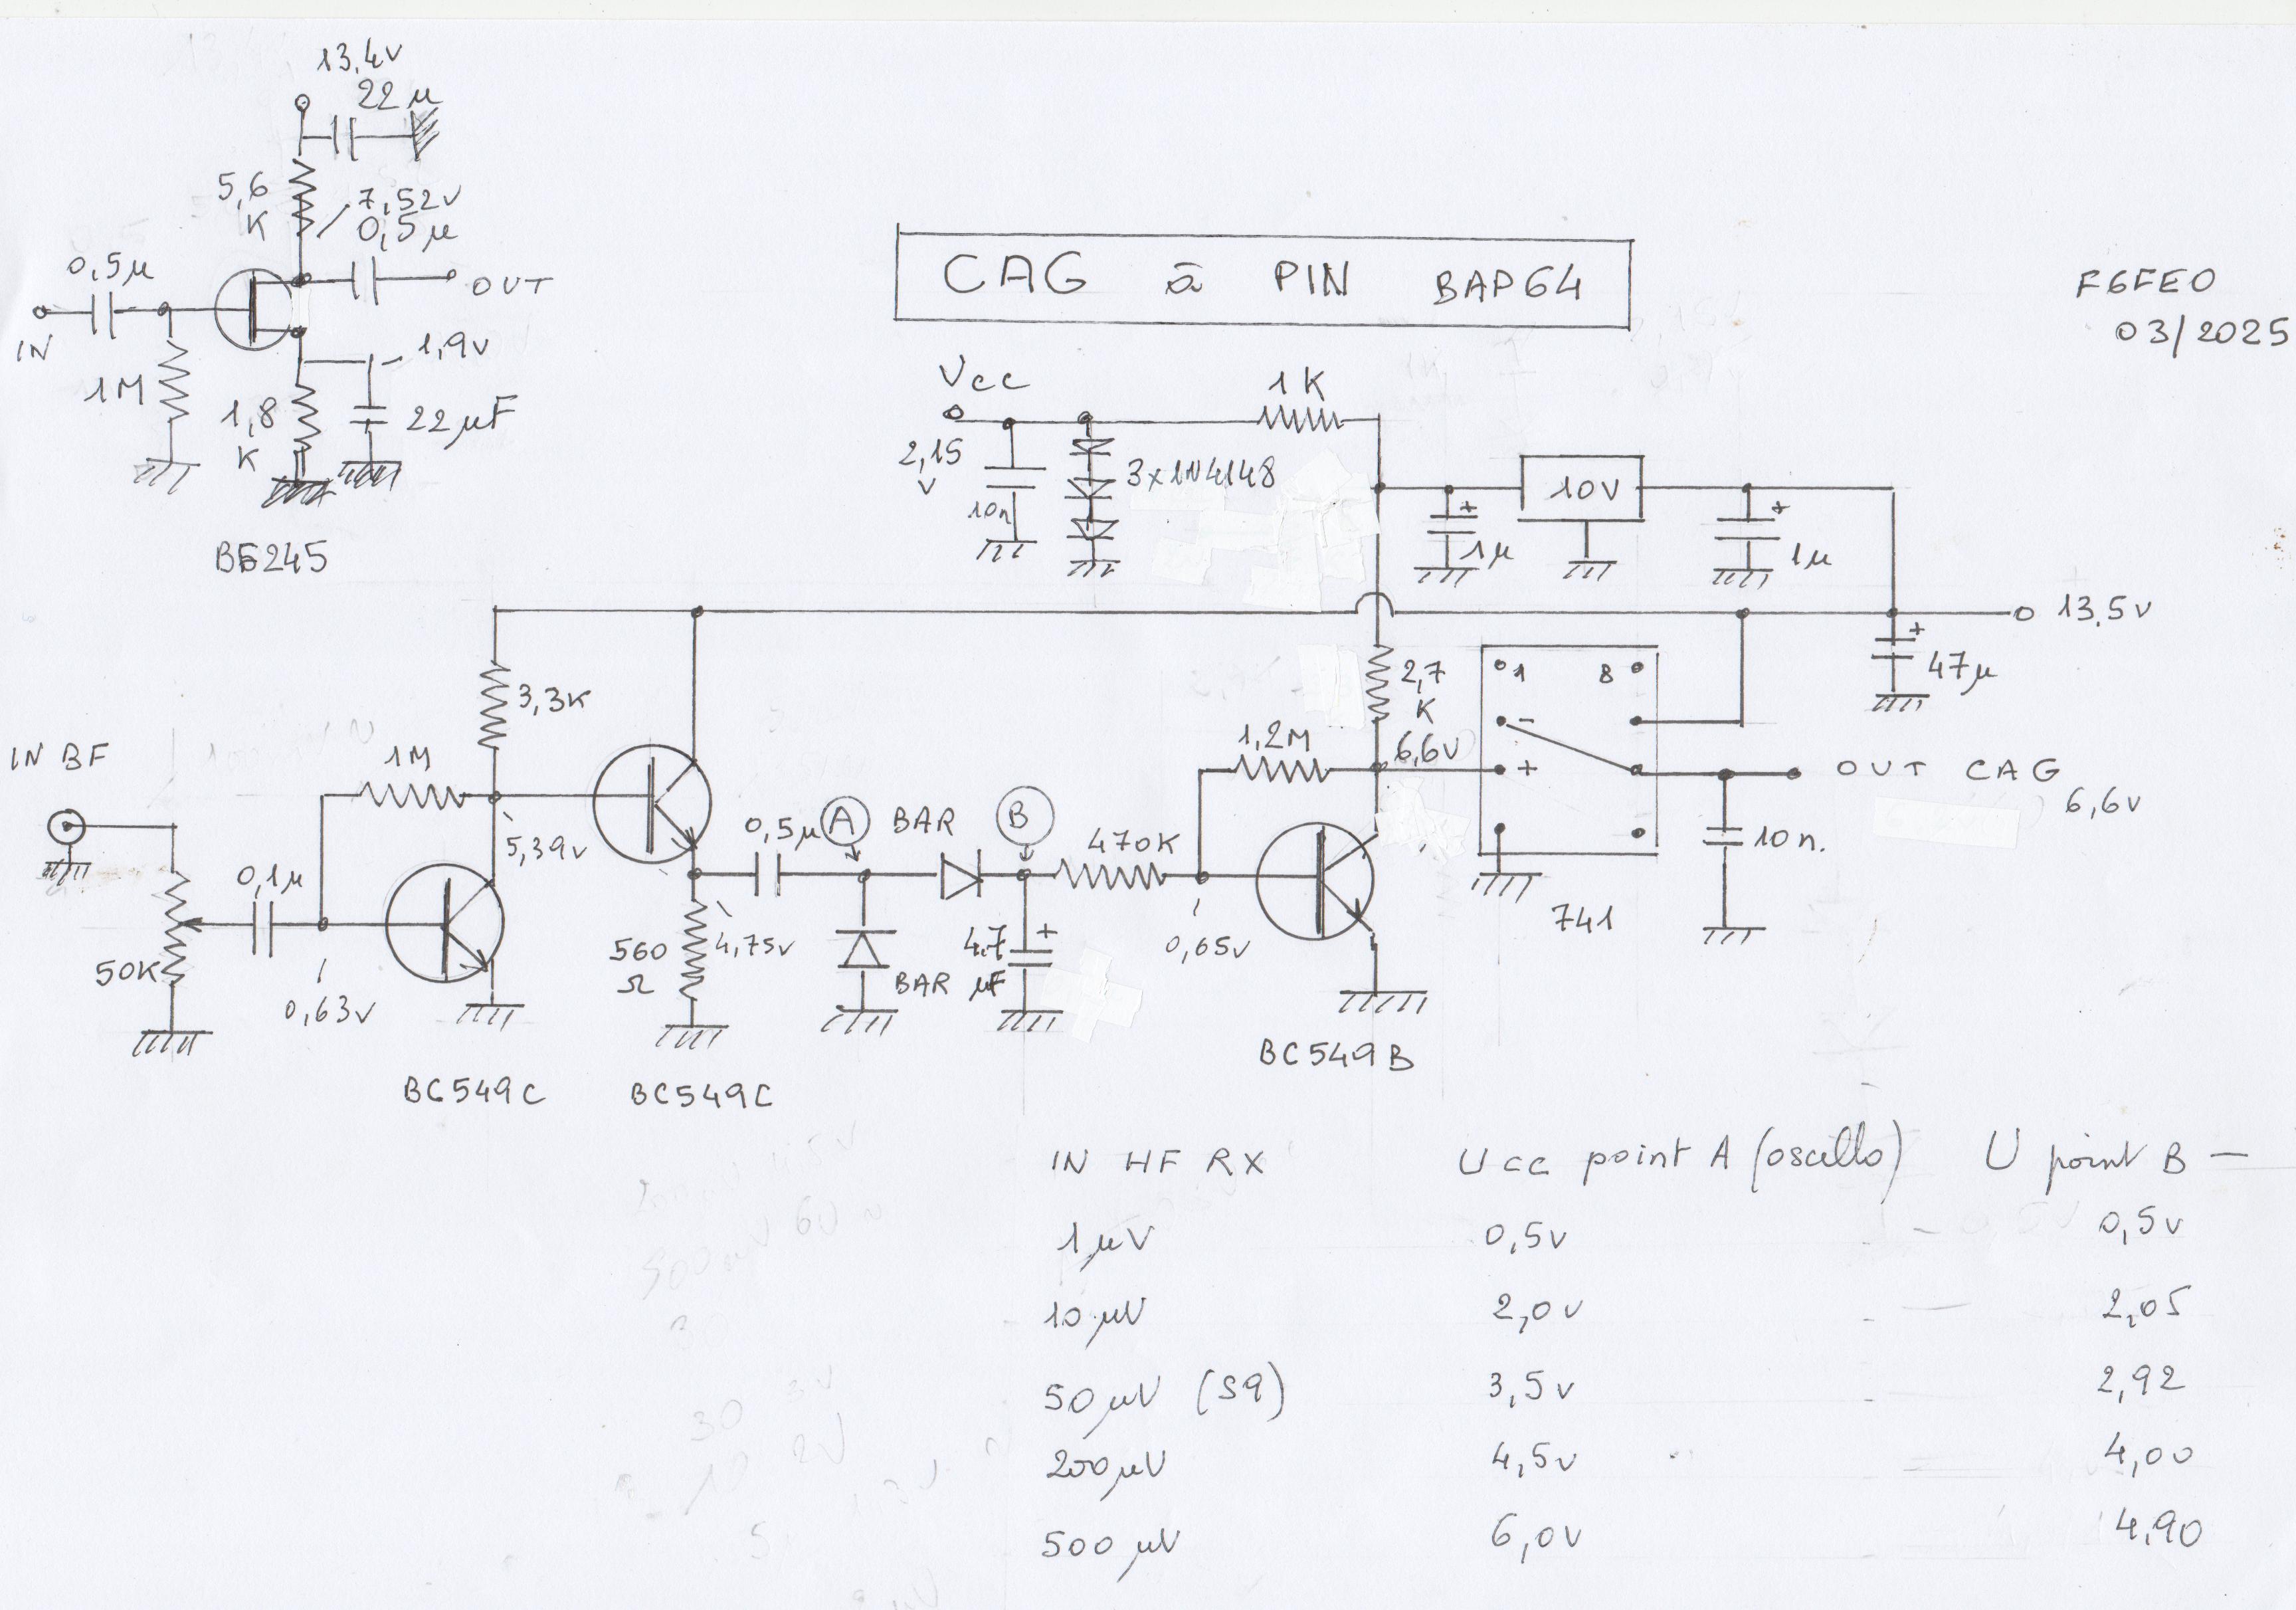 13,4v
22 µ
5,6
K
7,52v
0,5µ
0,5µ
OUT
IN
1M
1,9v
1,8
K
22 µF
BF245
CAG à PIN BAP64
F6FEO
03/2025
Vcc
1K
2,15
v
3x1N4148
10n
10V
1µ
1µ
13,5v
47µ
3,3K
2,7
K
1 8
-
+
1,2M
6,6v
IN BF
1M
5,39v
0,5µ
A
BAR
B
470K
OUT CAG
6,6v
10n.
741
0,1µ
50K
0,63v
560
Ω
4,75v
BAR
4,7
µF
0,65v
BC549C
BC549C
BC549B
IN HF RX Ucc point A (oscillo) U point B —
1µV 0,5v - 0,5v
10µV 2,0v - 2,05
50µV (S9) 3,5v - 2,92
200µV 4,5v - 4,00
500µV 6,0v 4,90